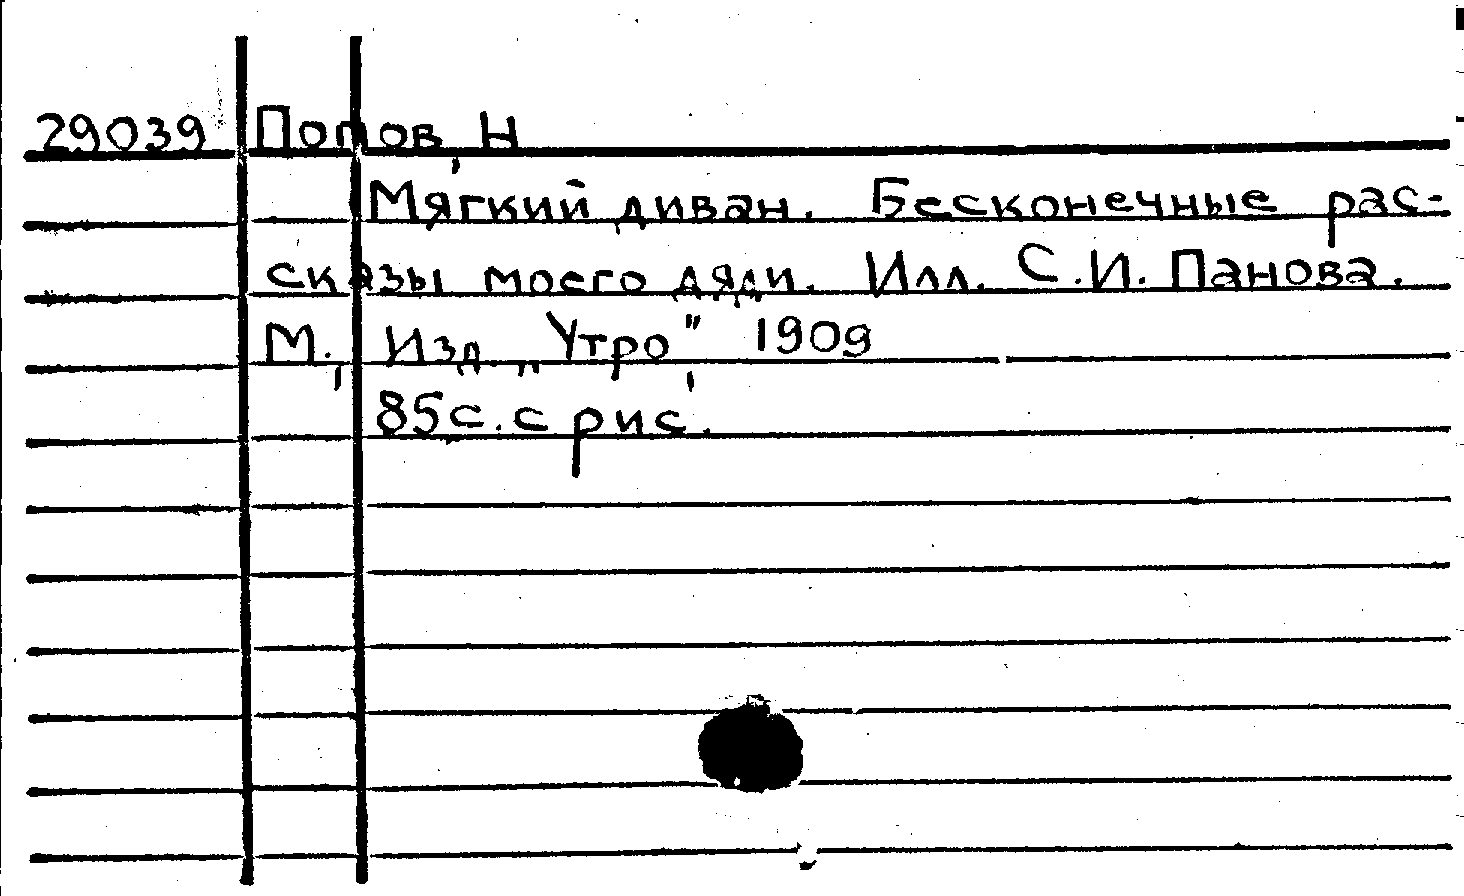 29039 Попов, Н
Мягкий диван. Бесконечные рас-
сказы моего дяди. Илл. С.И. Панова.
М., Изд. „Утро" 1909,
85с. с рис.